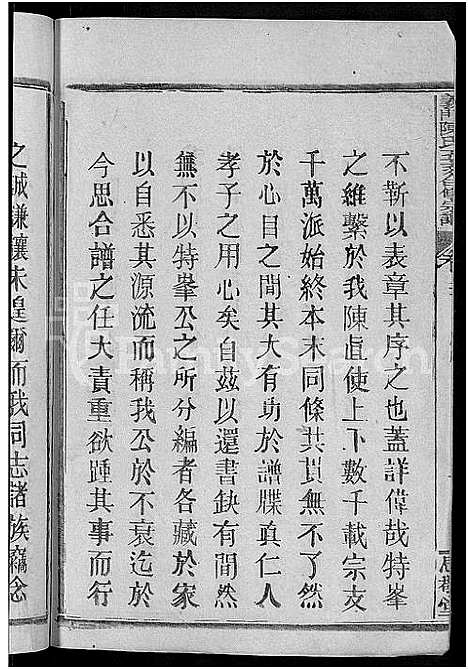 義門陳氏五
不靳以表章其序之也蓋詳偉哉特峯
之維繫於我陳直使上下數千載宗支
千萬派始終本末同條其貫無不了然
於心目之間其大有功於譜牒真仁人
孝子之用心矣自兹以還書缺有間然
無不以特峯公之所分編者各藏於家
以自悉其源流而稱我公於不衰迄於
今思合譜之任大責重欲踵其事而行
之誠謙讓未遑爾而我同志諸族竊念
FamilySearch